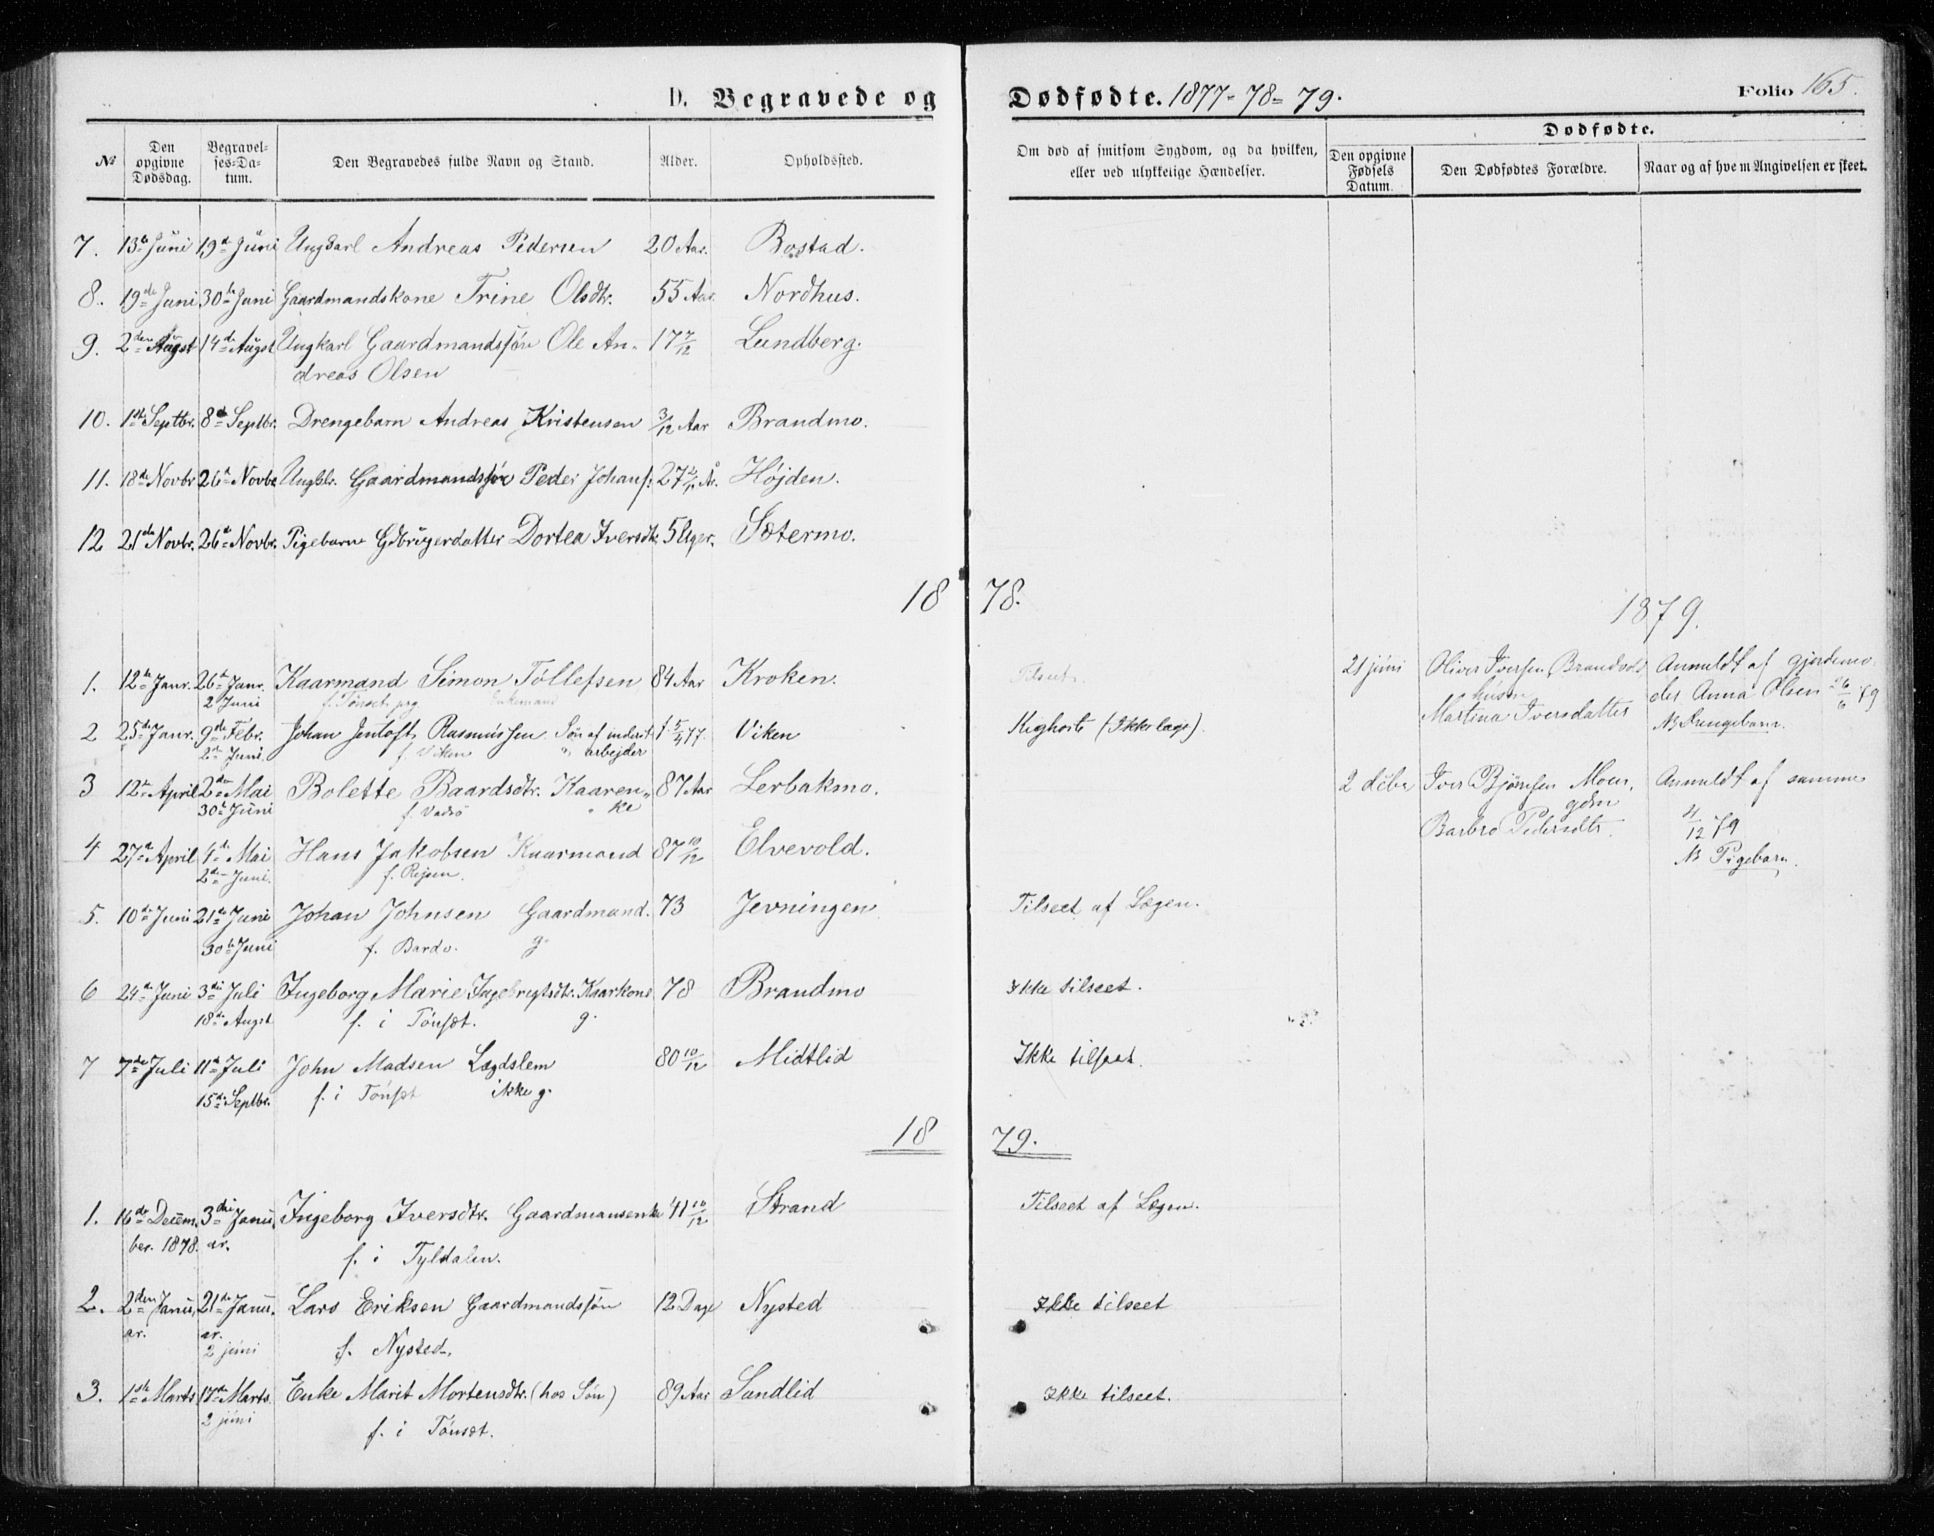 D. Begravede og Dødfødte. 1877-78-79. Folio 165.
№ Den opgivne Dødsdag. Begravelses-Datum. Den Begravedes fulde Navn og Stand. Alder. Opholdssted. Om død af smitsom Sygdom, og da hvilken, eller ved ulykkelige Hændelser. Dødfødte. Den opgivne Fødsels Datum. Den Dødfødtes Forældre. Naar og af hvem Angivelsen er skeet.
7. 13de Juni 19de Juni Ungkarl Andreas Pedersen 20 Aar. Bostad.
8. 19de Juni 30te Juni Gaardmandskone Trine Olsdtr. 55 Aar. Nordhus.
9. 2den Augst 14de Augst Ungkarl Gaardmandssøn Ole An-
dreas Olsen 17 7/12 Lundberg.
10. 1ste Septbr. 8de Septbr. Drengebarn Andreas Kristensen 3/12 Aar Brandmo.
11. 18de Novbr 26de Novbr Gaardmandssøn Peder Johans: Højden.
12 21de Novbr. 26de Novbr. Pigebarn Gdbrugerdatter Dortea Iversdtr. 5 Uger. Sætermo.
1878.
1879.
1. 12te Janr. 26de Janr. Kaarmand Simon Tollefsen 84 Aar Kroken. Tilseet.
2 Juni f. Tønset Enkemand
2 25de Janr. 9de Febr. Johan Jentoft Rasmussen Søn af inderst 1 5/4 77 Viken (Ikke læge).
2de Juni. f. Viken arbejder
3 12te April 2den Mai Bolette Baardsdtr. Kaaren- 87 Aar Lerbakmo.
30te Juni f. Vadsø ke
4 27de April 4de Mai Hans Jakobsen Kaarmand 87 10/12 Elvevold.
2den Juni. f. Rejsen.
5. 10de Juni 21de Juni Johan Johnsen Gaardmand. 73 Jevningen Tilseet af Lægen.
30te Juni f. Bardo. g.
6 24de Juni 3die Juli Ingeborg Marie Ingebrigtsdtr. Kaarkone 78 Brandmo Ikke tilseet.
18de Augst f. i Tønsæt. g.
7 7de Juli 11te Juli John Madsen Lægdslem 80 10/12 Midtlid Ikke tilseet.
15de Septbr. f. i Tønsæt ikke g.
21 juni Oliver Iversen Anmeldt af gjordemo
husm der Anna Olsen 26/6 79
Martina Iversdatter NB Drengebarn.
2 debr Iver Bjørnsen Moen, Anmeldt af samme
gdm 4/12 79
Barbro Pedersdtr. NB Pigebarn.
1879.
1. 16de Decem- 3die Janu- Ingeborg Iversdtr. Gaardmansenke 41 10/12 Strand Tilseet af Lægen.
ber. 1878. ar. f. i Tyldalen.
2. 2den Janu- 21de Janu- Lars Eriksen Gaardmandssøn 12 Dage Nysted Ikke tilseet
ar. ar.
2 juni f. Nysted.
3. 1ste Marts 17de Marts. Enke Marit Mortensdtr. (hos Søn) 89 Aar Sandlid Ikke tilseet.
2 juni f. i Tønsæt.